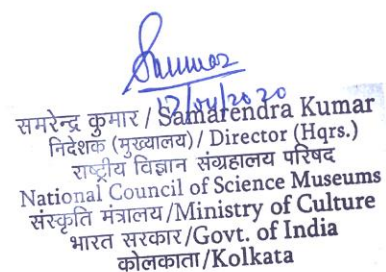 समरेन्द्र कुमार / Samarendra Kumar
निदेशक (मुख्यालय) / Director (Hqrs.)
राष्ट्रीय विज्ञान संग्रहालय परिषद
National Council of Science Museums
संस्कृति मंत्रालय/Ministry of Culture
भारत सरकार/Govt. of India
कोलकाता/Kolkata